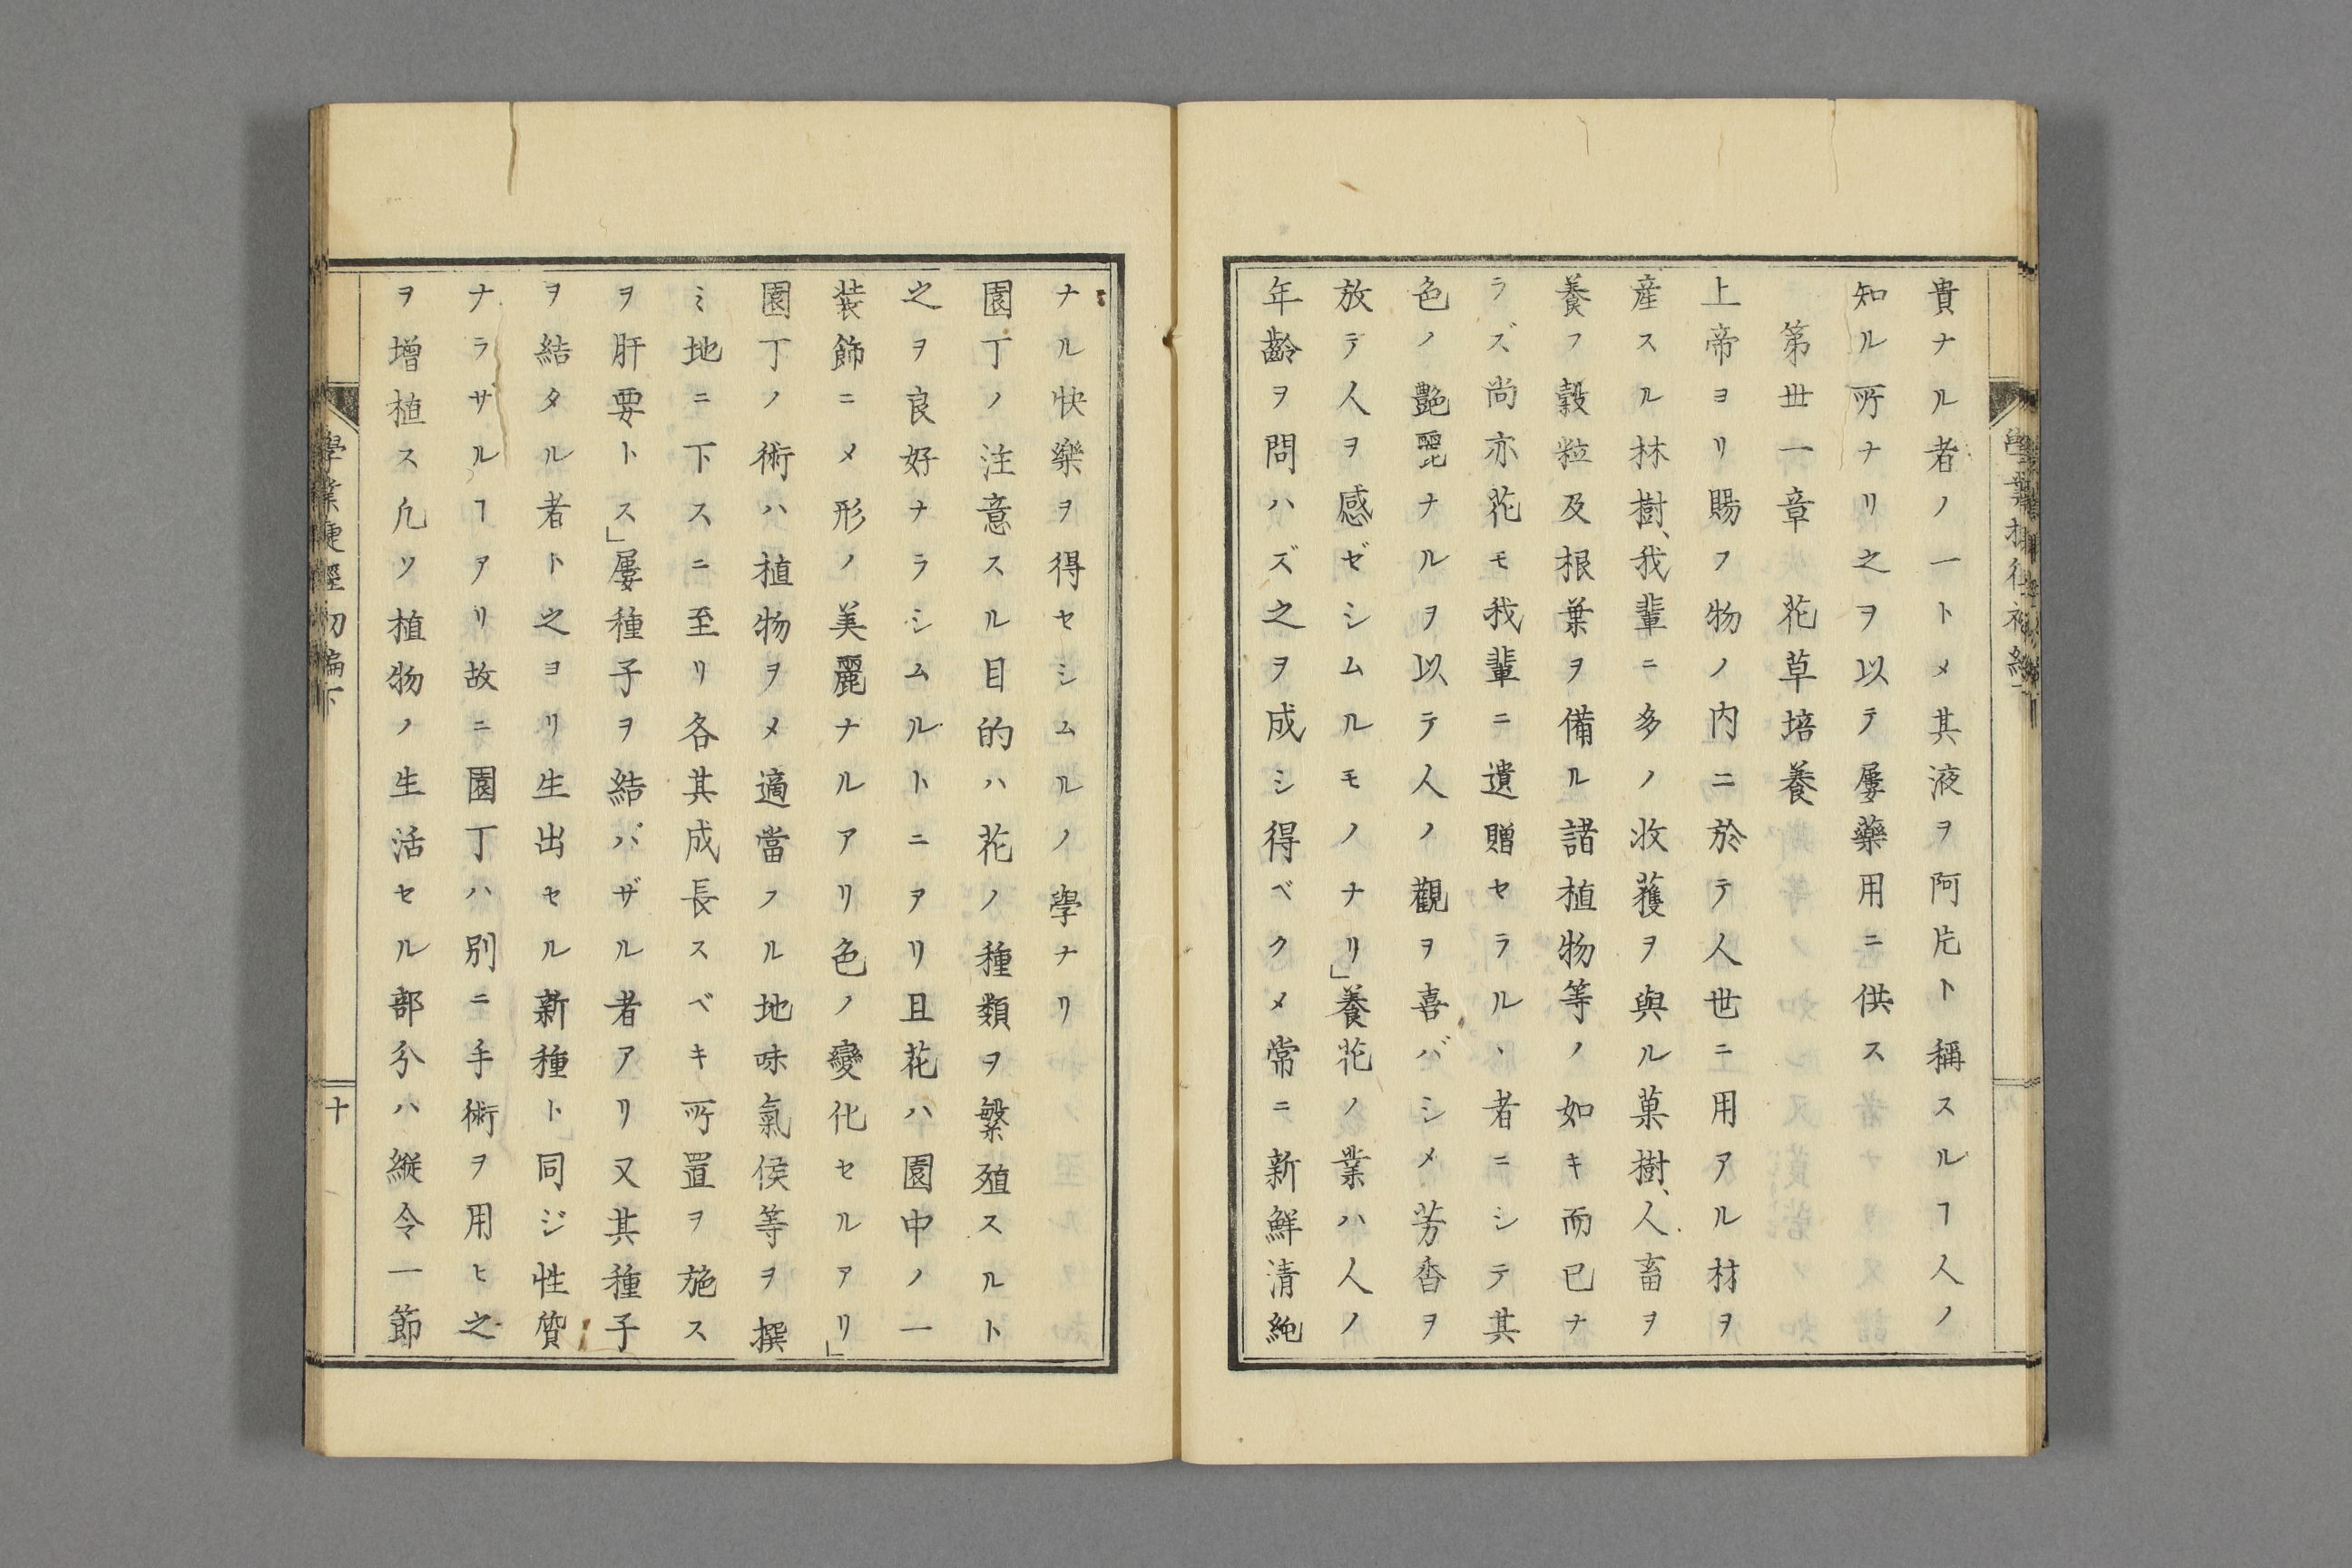 貴ナル者ノ一トメ其液ヲ阿片ト稱スルヿ人ノ
知ル所ナリ之ヲ以テ屢藥用ニ供ス
第丗一章 花草培養
上帝ヨリ賜フ物ノ内ニ於テ人世ニ用アル材ヲ
産スル林樹、我輩ニ多ノ收獲ヲ與ル菓樹、人畜ヲ
養フ穀粒及根葉ヲ備ル諸植物等ノ如キ而已ナ
ラズ尚亦花モ我輩ニ遺贈セラルヽ者ニシテ其
色ノ艶麗ナルヲ以テ人ノ觀ヲ喜バシメ芳香ヲ
放テ人ヲ感ゼシムルモノナリ」養花ノ業ハ人ノ
年齡ヲ問ハズ之ヲ成シ得ベクメ常ニ新鮮清純
ナル快樂ヲ得セシムルノ學ナリ
園丁ノ注意スル目的ハ花ノ種類ヲ繁殖スルト
之ヲ良好ナラシムルトニアリ且花ハ園中ノ一
装飾ニメ形ノ美麗ナルアリ色ノ變化セルアリ」
園丁ノ術ハ植物ヲメ適當フル地味氣侯等ヲ撰
ミ地ニ下スニ至リ各其成長スベキ所置ヲ施ス
ヲ肝要トス」屢種子ヲ結バザル者アリ又其種子
ヲ結タル者ト之ヨリ生出セル新種ト同ジ性質
ナラザルヿアリ故ニ園丁ハ別ニ手術ヲ用ヒ之
ヲ增植ス凢ソ植物ノ生活セル部分ハ縦令一節
學業捷徑初編下
十